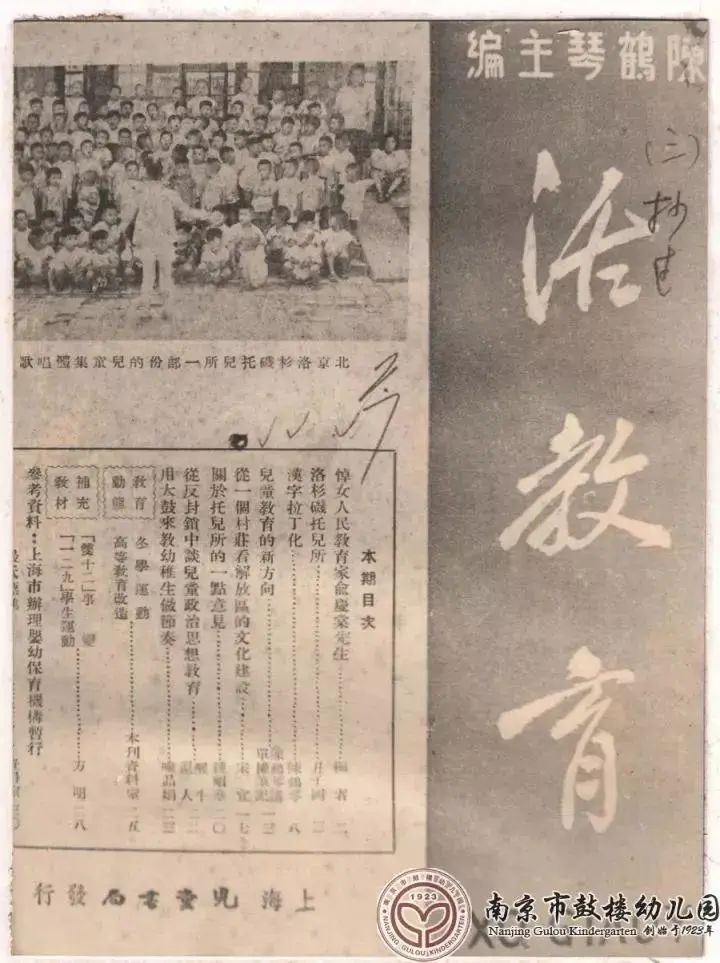 陳鶴琴主編
活教育
(三)
北京洛杉磯托兒所一部份的兒童集體唱歌
本期目次
悼女人民教育家俞慶棠先生 編者 二
洛杉磯托兒所
漢字拉丁化 陳鶴琴 八
兒童教育的新方向
從一個村莊看解放區的文化建設 一七
關於托兒所的一點意見 二〇
從反封鎖中談兒童政治思想教育
用大鼓來教幼稚生做節奏
教育動態
冬學運動
高等教育改造 本刊資料室 二五
補充教材
「雙十二」事變
「一二九」學生運動 方明 二八
參考資料：上海市辦理嬰幼保育機構暫行
上海兒童書局發行
1923
南京市鼓楼幼儿园
Nanjing Gulou Kindergarten 创始于1923年